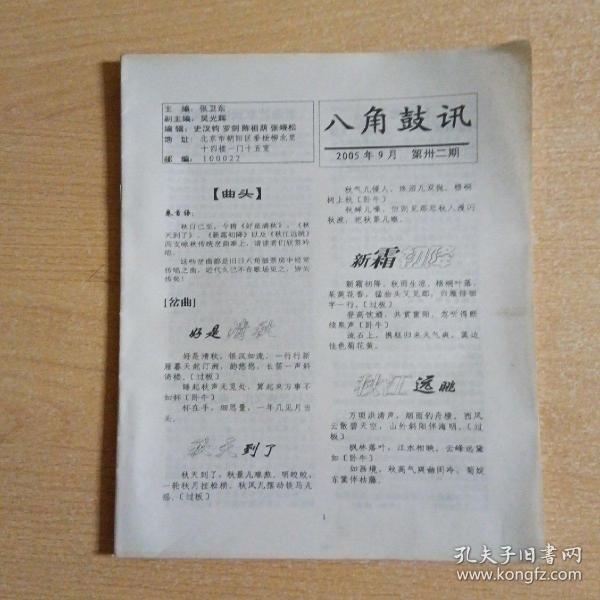 主 编：张卫东
副主编：吴光辉
编 辑：史汉钧 罗剑 陈祖荫 张峨松
地 址：北京市朝阳区垂杨柳北里
十四楼一门十五室
邮 编：100022
八角鼓讯
2005年9月 第卅二期
【曲头】
卷首语：
秋日已至，今将《好是清秋》、《秋
天到了》、《新霜初降》以及《秋江远眺》
四支咏秋传统岔曲推上，请读者们欣赏吟
唱。
这些岔曲都是旧日八角鼓票房中经常
传唱之曲，近代久已不在歌场见之，皆失
传矣！
[岔曲]
好是清秋
好是清秋，银汉如流，一行行新
雁暮天起汀洲，韵悠悠，长笛一声斜
倚楼。〔过板〕
睡起秋声无觅处，算起来万事不
如杯〔卧牛〕
杯在手，细思量，一年几见月当
头。
秋天到了
秋天到了，秋景儿难熬。明皎皎，
一轮秋月挂松梢，秋风儿摆动铁马儿
摇。〔过板〕
秋气儿侵人，
树上秋〔卧牛〕
秋蝉儿噪，
秋波，把秋景儿瞧。
新霜初降
新霜初降，秋雨生凉，梧桐叶落，
茱萸花香，猛抬头又见那，白雁传书
字一行。〔过板〕
登高饮酒，共赏重阳，忽听得断
续素声〔卧牛〕
流石上，携糕归来天气爽，篱边
佳色菊花黄。
秋江远眺
万顷洪涛声，烟雨钓舟横，西风
云散碧天空，山外斜阳伴海明。〔过
板〕
枫林落叶，江水相映，云峰远黛
如〔卧牛〕
如燕境，秋高气爽幽闲冷，菊绽
东篱伴枯藤。
1
孔夫子旧书网
www.kongfz.com